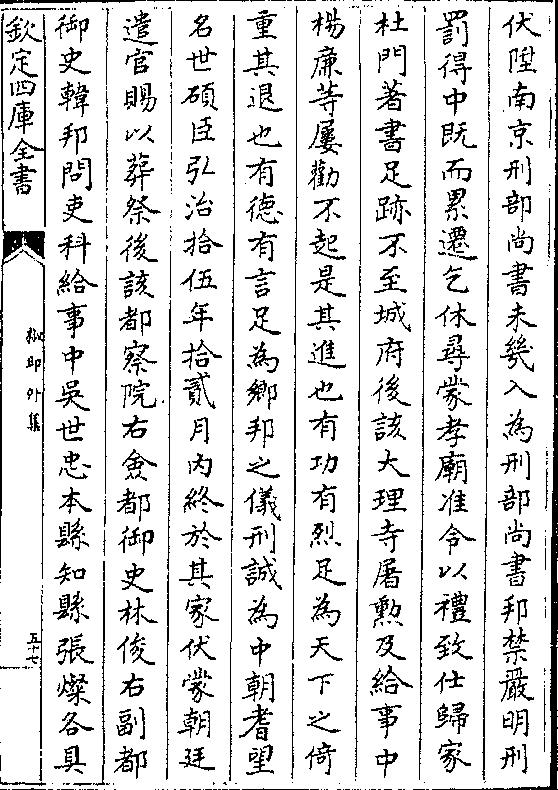 伏陞南京刑部尚書未幾入為刑部尚書邦禁嚴明刑
罰得中既而累遷乞休尋蒙孝廟准令以禮致仕歸家
杜門著書足跡不至城府後該大理寺屠勲及給事中
楊廉等屢勸不起是其進也有功有烈足為天下之倚
重其退也有德有言足為鄉邦之儀刑誠為中朝耆望
名世碩臣弘治拾伍年拾貳月內終於其家伏蒙朝廷
遣官賜以葬祭後該都察院右僉都御史林俊右副都
御史韓邦問吏科給事中吳世忠本縣知縣張燦各具
欽定四庫全書
椒邱外集
五十七